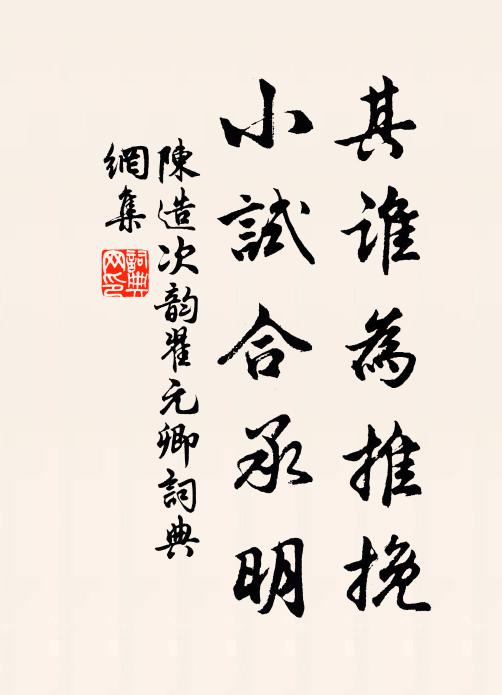 其誰為推挽
小試合承明
陳造次韵翟元卿詞典
網集
詞典
网印